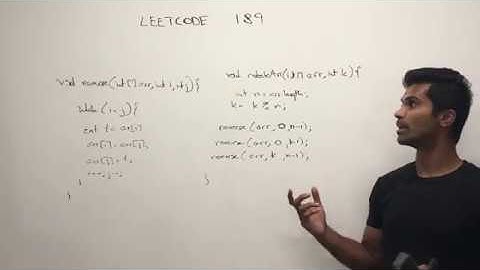 LEETCODE 189
void reverse(int[] arr, int i, int j){
while(i<j){
int t = arr[i]
arr[i] = arr[j];
arr[j] = t;
i++, j--;
}
}
void rotateArr(int[] arr, int k){
int n = arr.length;
k = k % n;
reverse(arr, 0, n-1);
reverse(arr, 0, k-1);
reverse(arr, k, n-1);
}